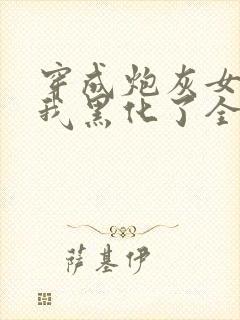 穿成炮灰女
我黑化了全
萨基伊